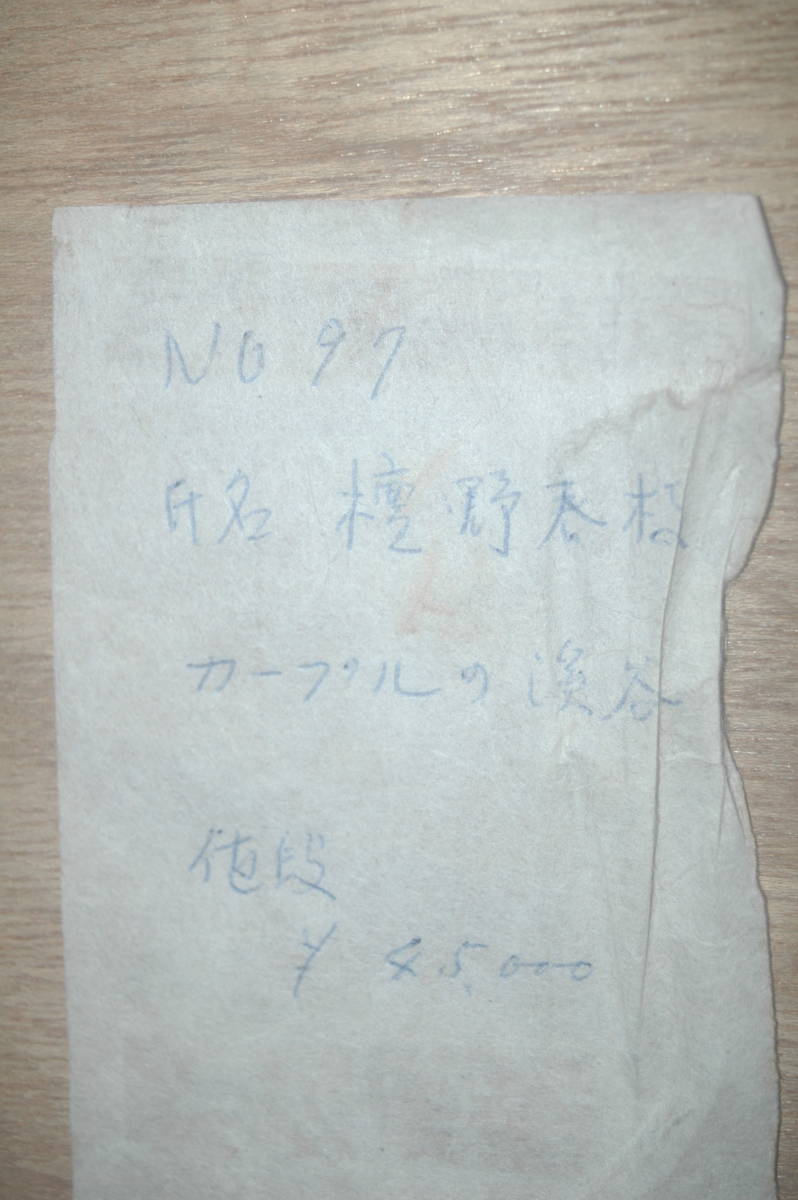 NO 97
氏名 檀野春枝
カーブルの渓谷
値段
¥ 45,000